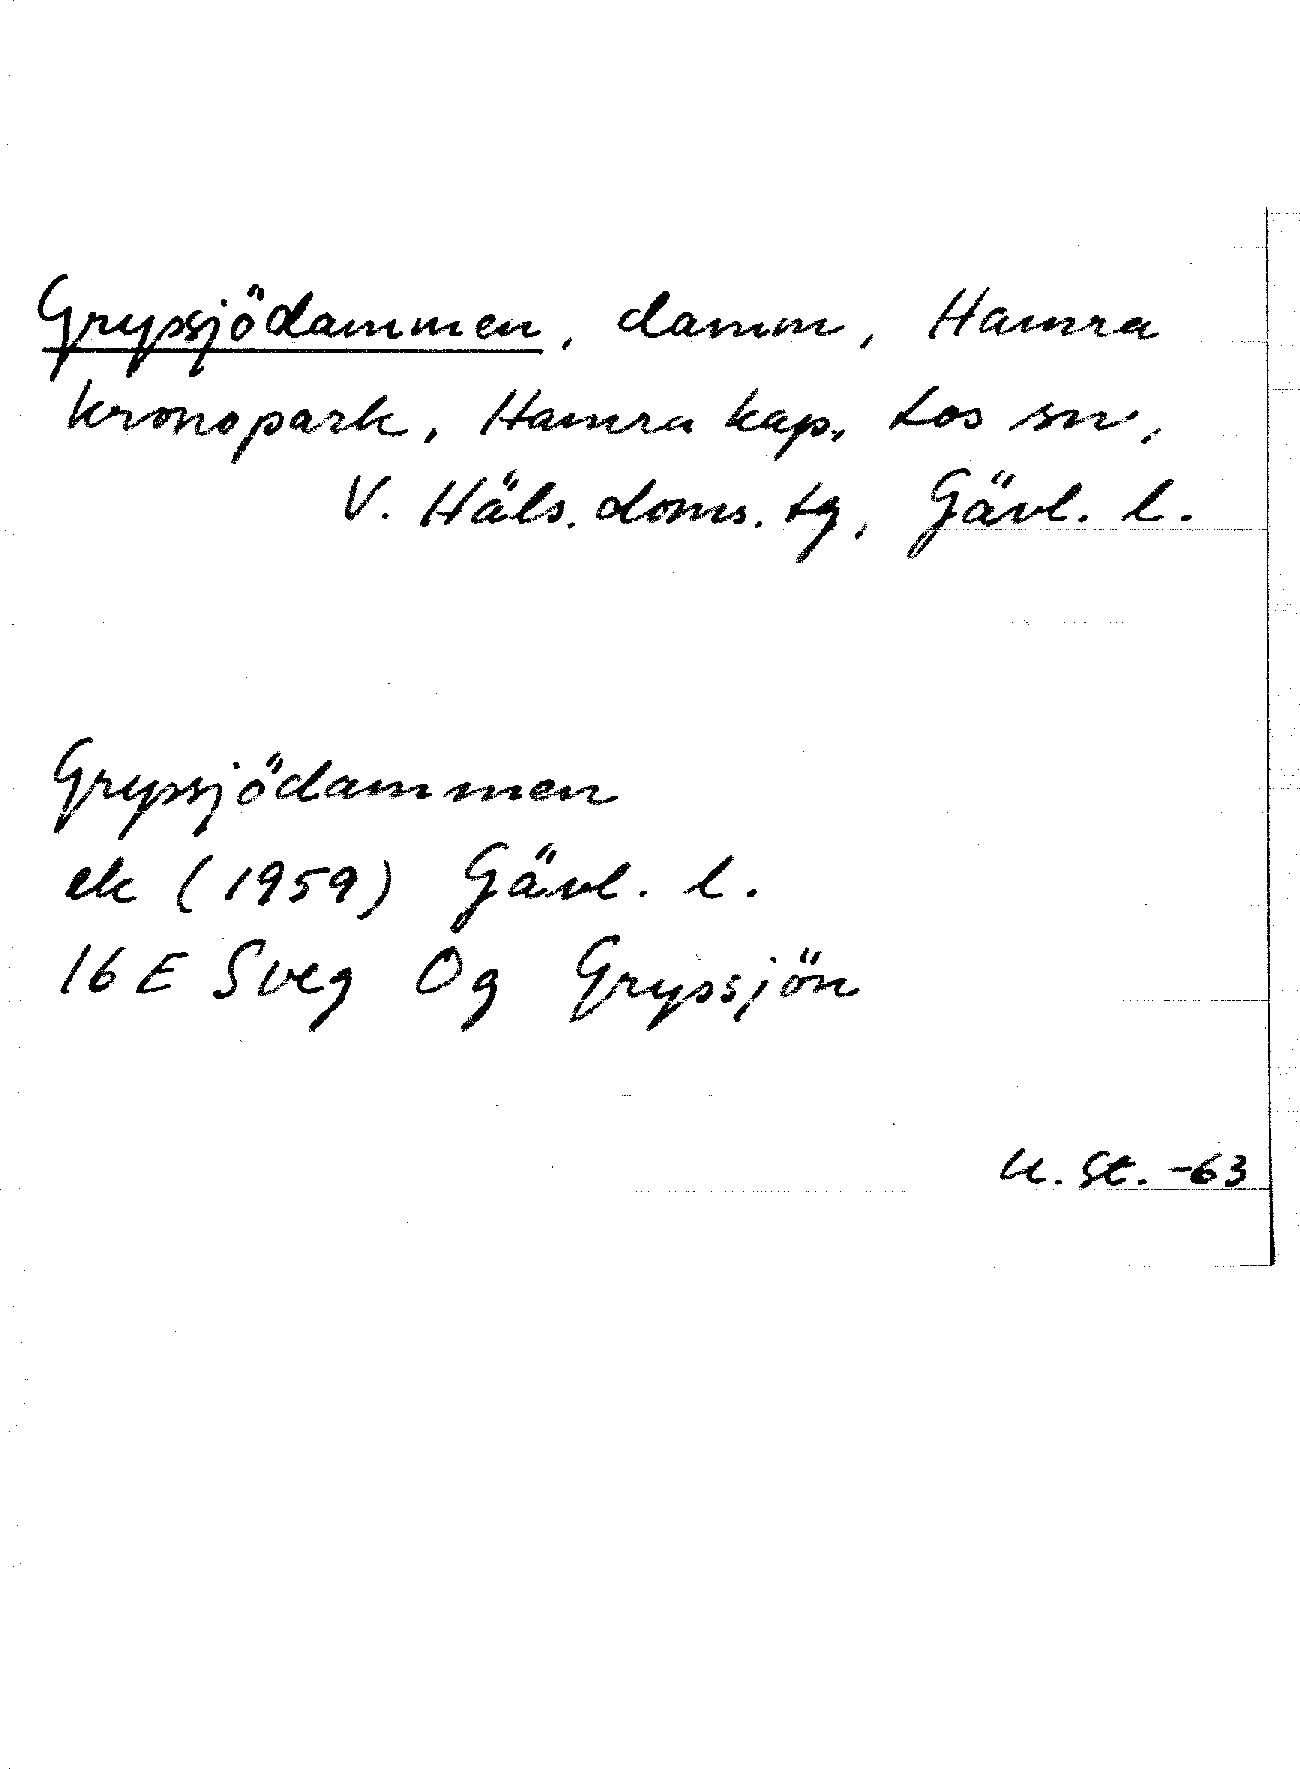 Grypsjödammen, damm, Hamra
kronopark, Hamra kap., Los sn,
V. Häls. doms. tg, Gävl. l.
Grypsjödammen
ek (1959) Gävl. l.
16 E Sveg Og Gryssjön
U. St. -63